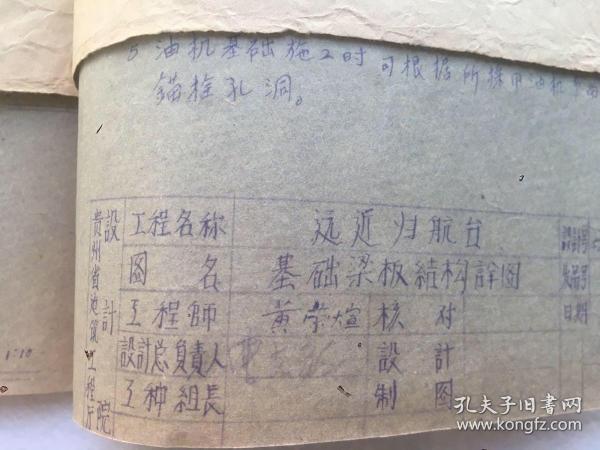 5 油机基础施工时可根据所採用油机
錨栓孔洞。
貴州省建筑工程厅
設計院
工程名称 远近归航台 設計号
圖名 基础梁板結构詳图 成品号
工程師 黄荣煊 核对 日期
設計总負責人 設計
工种組長 制图
1:10
孔夫子旧书网
www.kongfz.com